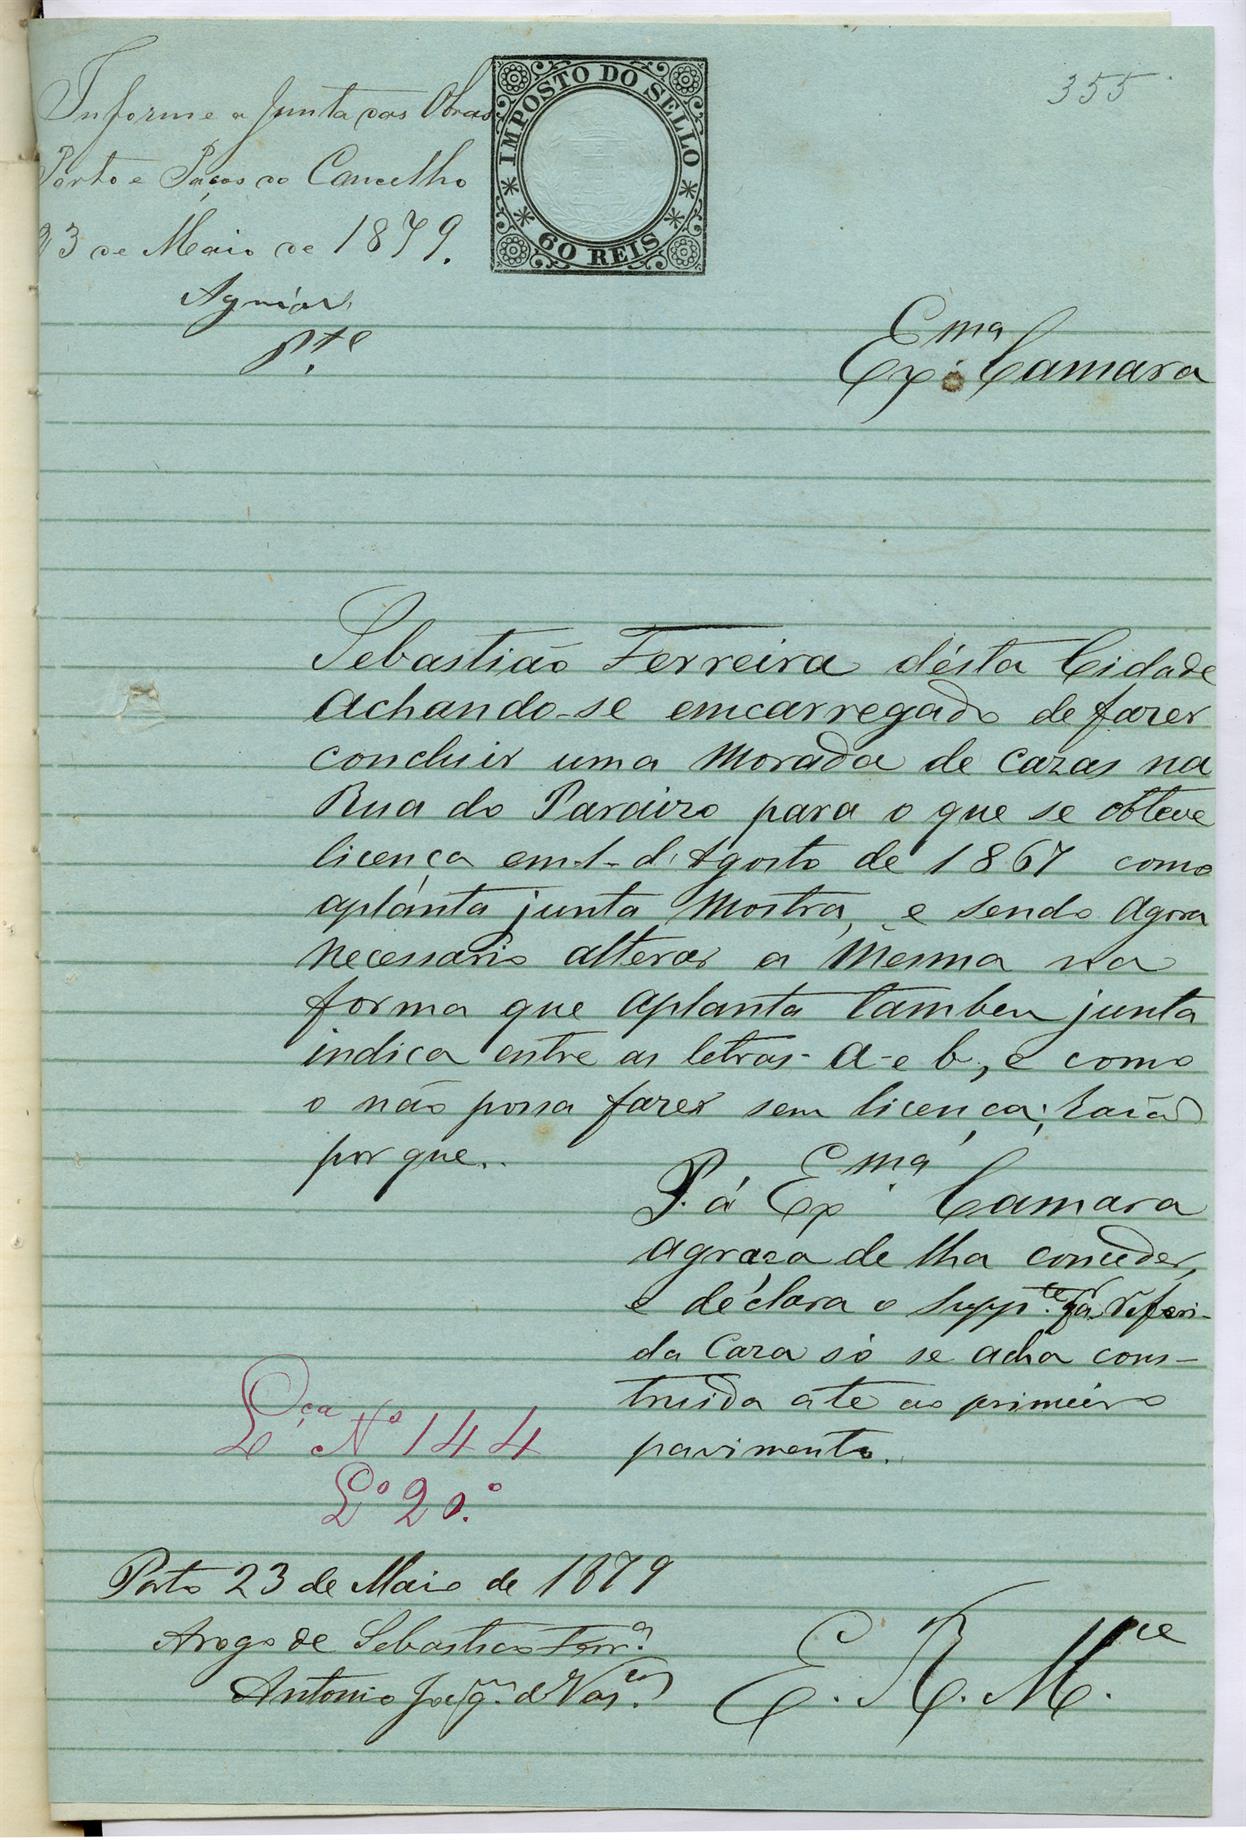 355
Informe a Junta das Obras
Porto e Paços do Concelho
23 de Maio de 1879.
Aguiar
P.te
IMPOSTO DO SELLO
60 REIS
Ex.ma Camara
Sebastião Ferreira désta Cidade
Achando-se emcarregado de fazer
concluir uma Morada de Cazas na
Rua do Paraizo para o que se obteve
licença em 1 d'Agosto de 1867 como
aplanta junta Mostra, e sendo Agora
Necessario alterar a Mesma na
forma que aplanta tambem junta
indica entre as letras - a - e b, e como
o não possa fazer sem licença; razão
por que..
P. á Ex.ma Camara
agraça de lha conceder,
e déclara o Supp.te q̃ a refferi-
da Caza só se acha cons-
truida ate ao primeiro
pavimento.
L.ça Nº 144
Lº 20.º
Porto 23 de Maio de 1879
Arogo de Sebastião Ferr.ª
Antonio Joaq.m de Vas.cos
E. R. M.ce